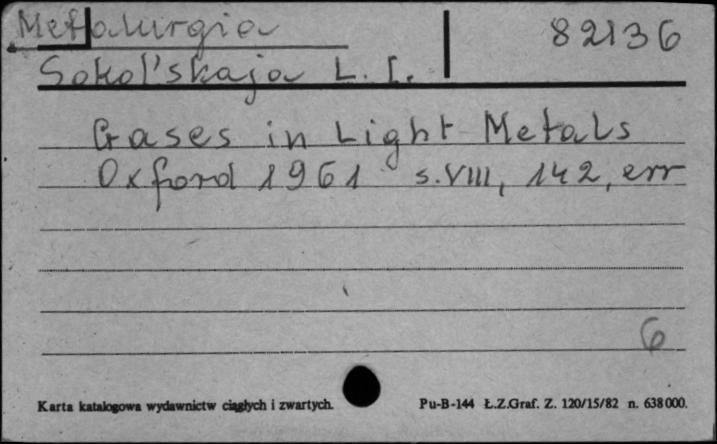 Metalurgia 82136
Sokol'skaja L. I.
Gases in Light Metals
Oxford 1961 s. VIII, 142, err
6
Karta katalogowa wydawnictw ciągłych i zwartych. Pu-B-144 Ł.Z.Graf. Z. 120/15/82 n. 638000.